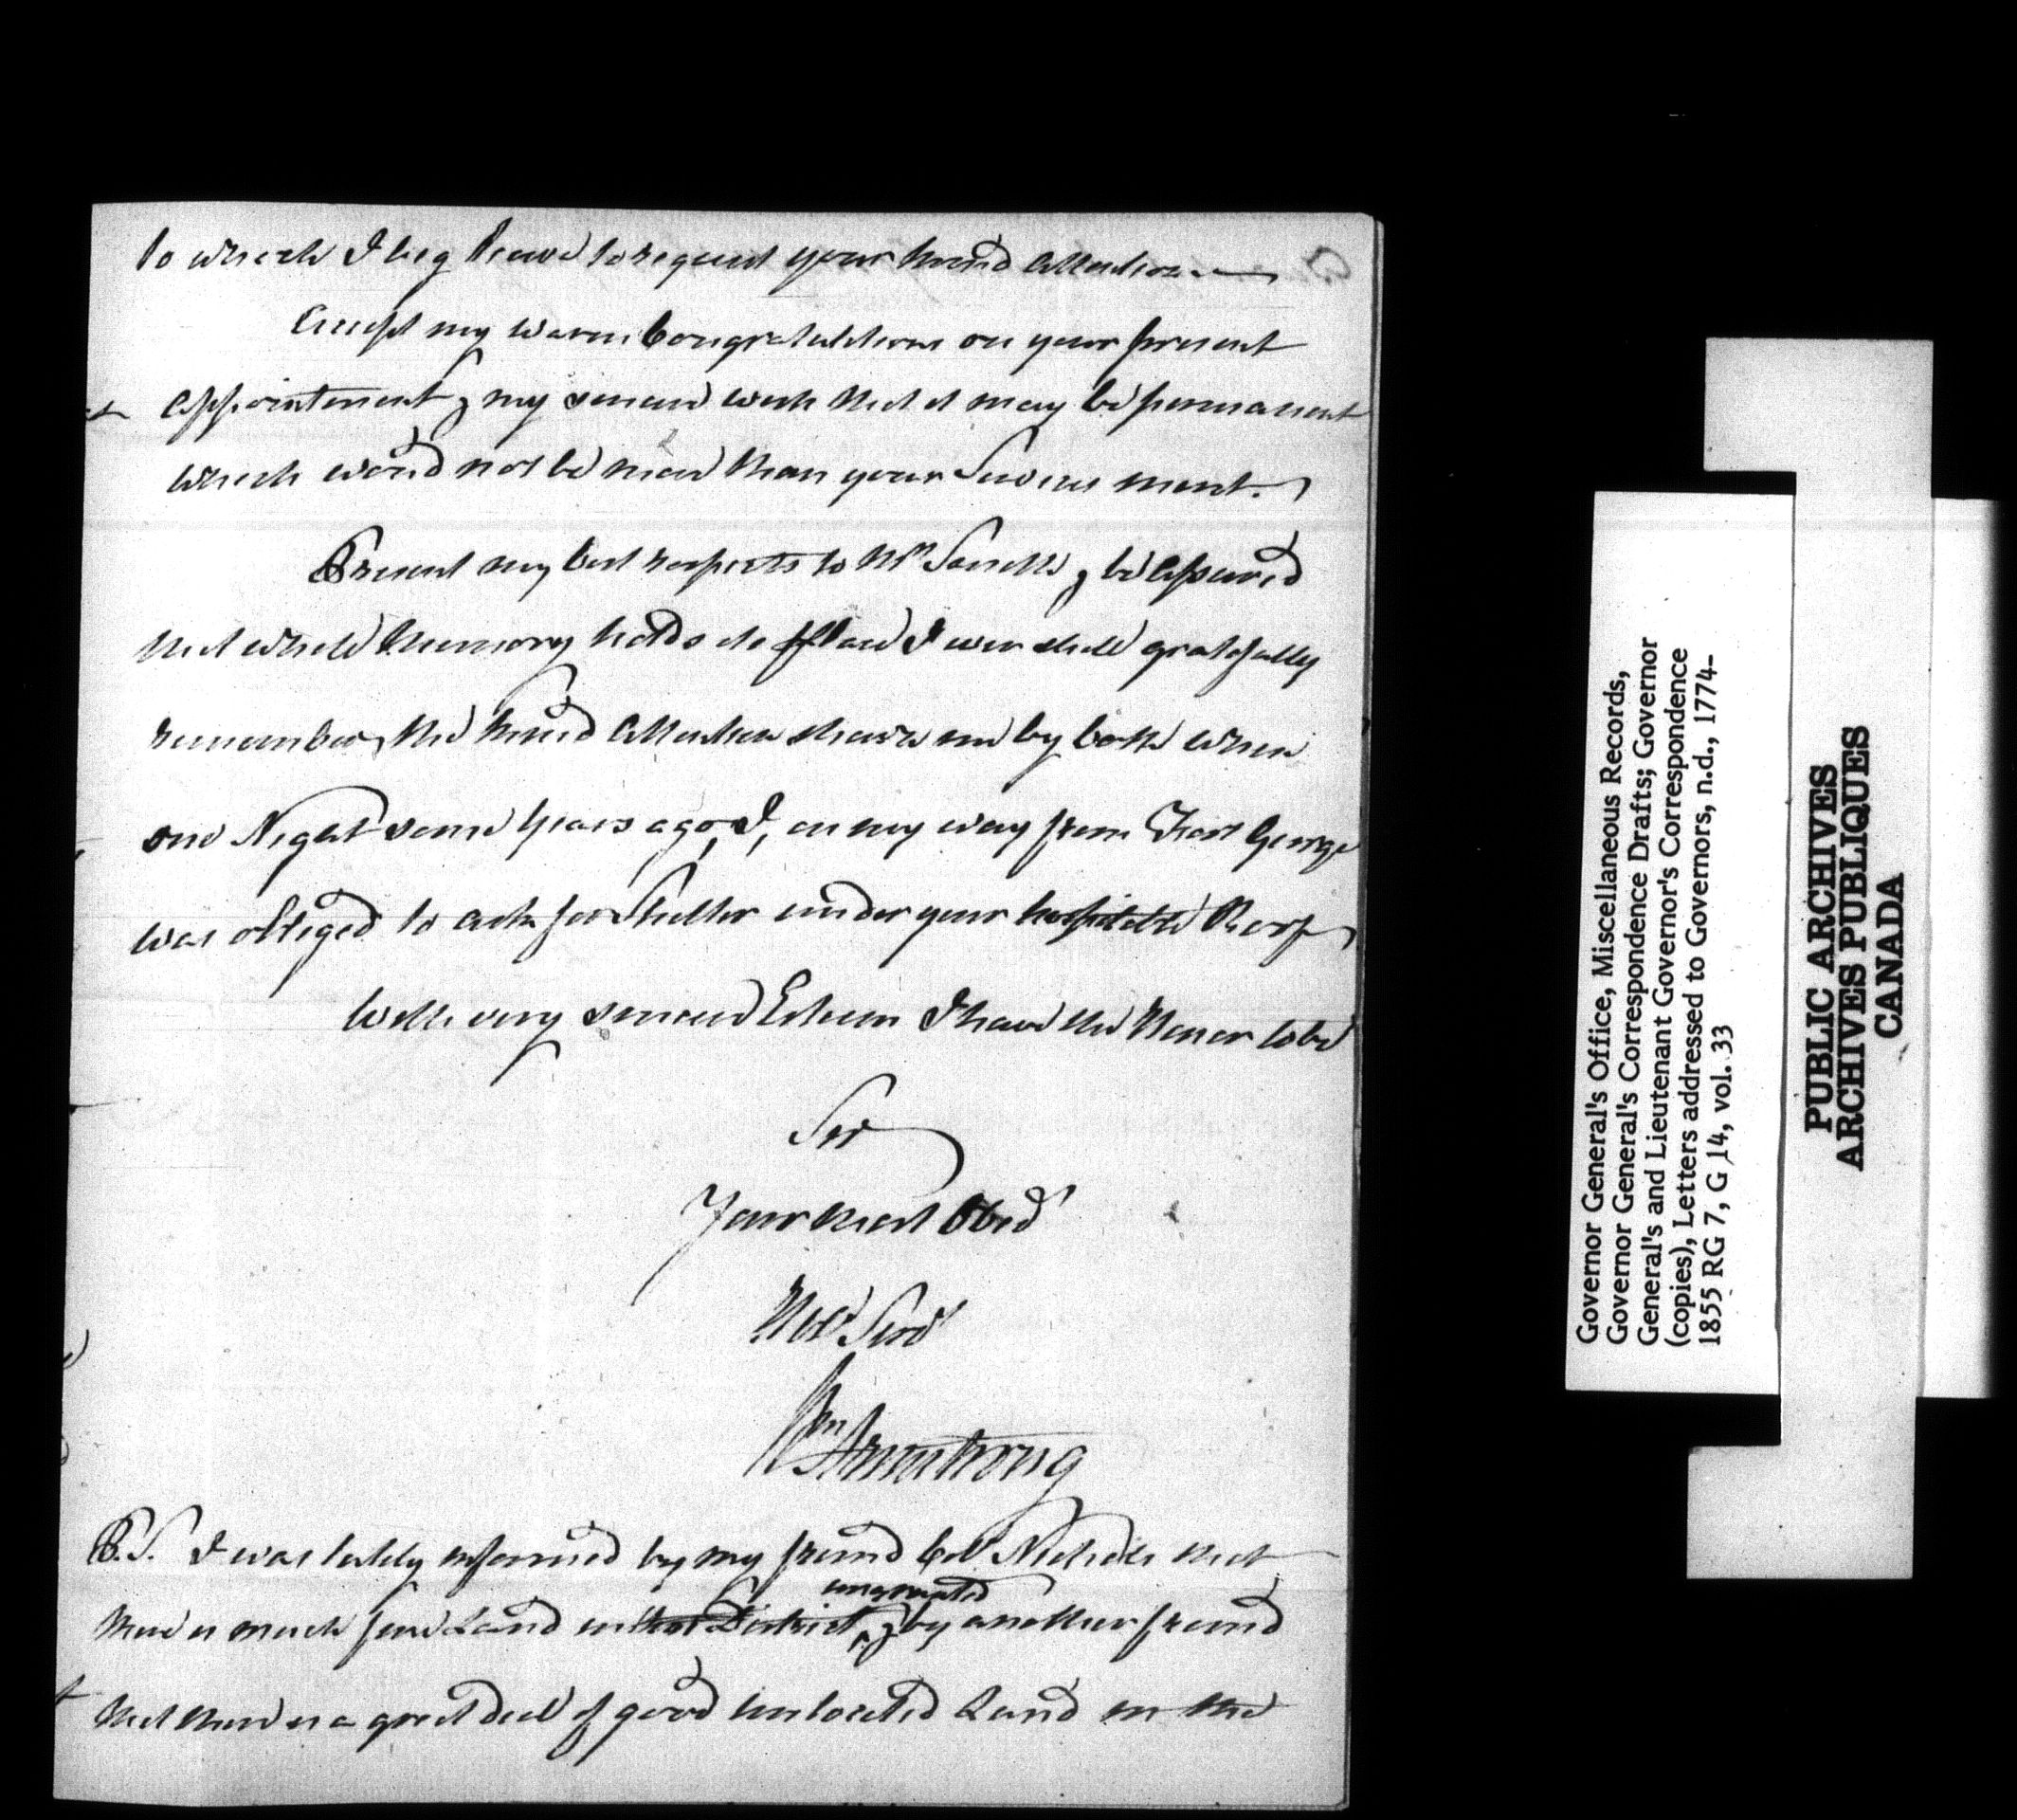 to which I beg leave to request your kind attention.
Accept my warm Congratulations on your present
appointment & my sincere wish that it may be permanent
which wou'd not be more than your Services merit.
Present my best respects to Mrs Smith & be assured
that while Memory holds its place I ever shall gratefully
remember the kind attention shewn me by both when
one Night some Years ago, I, on my way from Fort George
was obliged to ask for Shelter under your hospitable Roof
With very sincere Esteem I have the Honor to be
Sir
Your most Obed
Hble Servt
Armstrong
P.S. I was lately informed by my friend Coll Nichols that
ungranted
there is much fine Land in his District, & by another friend
that there is a great deal of good unlocated Land in the
Governor General's Office, Miscellaneous Records,
Governor General's Correspondence Drafts; Governor
General's and Lieutenant Governor's Correspondence
(copies), Letters addressed to Governors, n.d., 1774-
1855 RG 7, G 14, vol. 33
PUBLIC ARCHIVES
ARCHIVES PUBLIQUES
CANADA